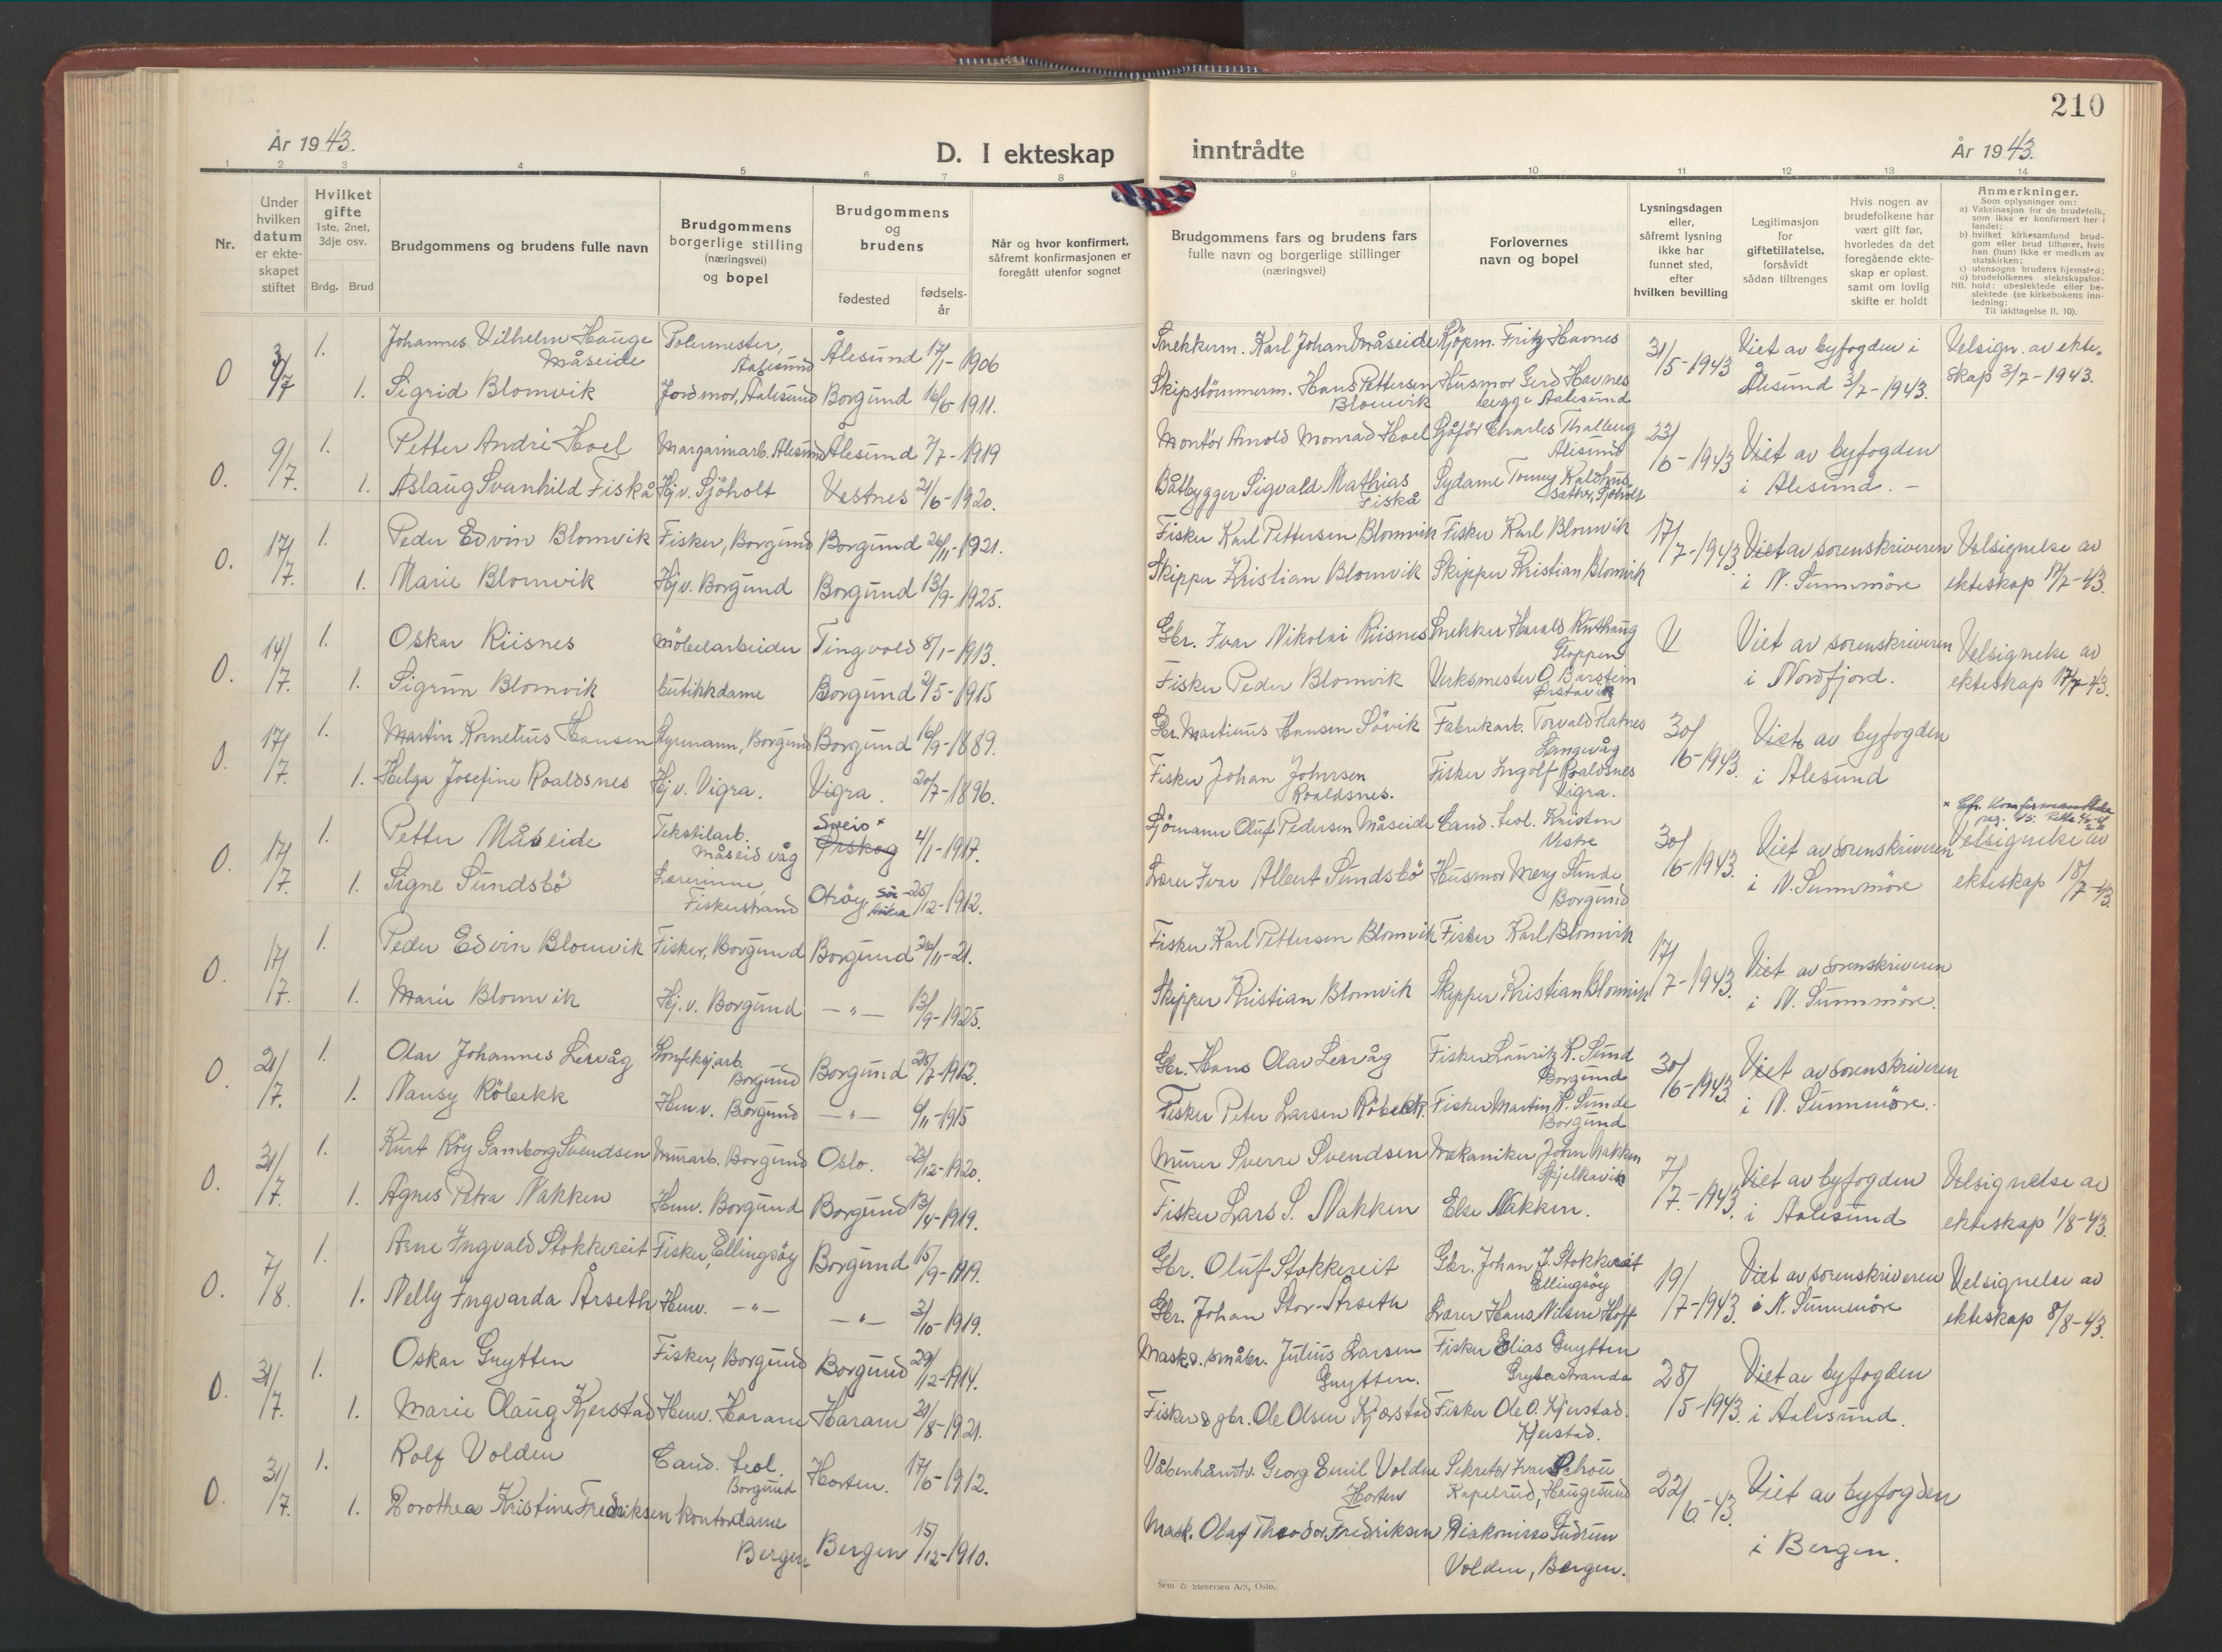 210
År 1943.
D. I ekteskap
inntrådte
År 1943.
1 2 3 4 5 6 7 8 9 10 11 12 13 14
Nr.
Under hvilken datum er ekteskapet stiftet
Hvilket gifte 1ste, 2net, 3dje osv.
Brdg. Brud
Brudgommens og brudens fulle navn
Brudgommens borgerlige stilling (næringsvei) og bopel
Brudgommens og brudens
fødested
fødsels-år
Når og hvor konfirmert, såfremt konfirmasjonen er foregått utenfor sognet
Brudgommens fars og brudens fars fulle navn og borgerlige stillinger (næringsvei)
Forlovernes navn og bopel
Lysningsdagen eller, såfremt lysning ikke har funnet sted, efter hvilken bevilling
Legitimasjon for giftetillatelse, forsåvidt sådan tiltrenges
Hvis nogen av brudefolkene har vært gift før, hvorledes da det foregående ekteskap er opløst, samt om lovlig skifte er holdt
Anmerkninger.
Som oplysninger om:
a) Vaksinasjon for de brudefolk, som ikke er konfirmert her i landet;
b) hvilket kirkesamfund brudgom eller brud tilhører, hvis han (hun) ikke er medlem av statskirken;
c) utensogns brudens hjemsted;
d) brudefolkenes slektskapsforhold: ubeslektede eller beslektede (se kirkebokens innledning:
Til iakttagelse II. 10).
O 3/7 1. Johannes Vilhelm Hauge Måseide Polermester, Aalesund Ålesund 17/1-1906 Snekkerm. Karl Johan Måseide Kjöpm. Fritz Havnes 31/5-1943 Viet av byfogden i Ålesund 3/7-1943. Velsign. av ekteskap 3/7-1943.
1. Sigrid Blomvik Jordmor, Aalesund Borgund 16/6-1911. Skipstömmerm. Hans Pettersen Blomvik Husmor Gerd Havnes begge Aalesund
O. 9/7. 1. Petter André Hoel Margarinarb. Ålesund Ålesund 7/7-1919 Montör Arnold Monrad Hoel Sjåför Charles Thalberg Ålesund 23/6-1943 Viet av byfogden i Ålesund. -
1. Aslaug Svanhild Fiskå Hj. v. Sjöholt Vestnes 21/6-1920. Båtbygger Sigvald Mathias Fiskå Sydame Tonny Kaldhus sæthr, Sjöholt
O. 17/7. 1. Peder Edvin Blomvik Fisker, Borgund Borgund 26/11-1921. Fisker Karl Pettersen Blomvik Fisker Karl Blomvik 17/7-1943 Viet av sorenskriveren i N. Sunnmöre Velsignelse av ekteskap 17/7-43.
1. Marie Blomvik Hj. v. Borgund Borgund 13/9-1925. Skipper Kristian Blomvik Skipper Kristian Blomvik
O. 14/7. 1. Oskar Riisnes Möbelarbeider Tingvold 8/1-1913. Gbr. Ivar Nikolai Riisnes Snekker Harald Ruthaug Gloppen Viet av sorenskriveren i Nordfjord. Velsignelse av ekteskap 17/7-43.
1. Sigrun Blomvik butikkdame Borgund 2/5-1915 Fisker Peder Blomvik Verksmester O. Barstein Ørstavik
O. 17/7. 1. Martin Kornelius Hansen Styrmann, Borgund Borgund 16/9-1889. Gbr. Martinus Hansen Sövik Fabrikarb. Torvald Flatnes Langevåg 30/6-1943. Viet av byfogden i Ålesund
1. Helga Josefine Roaldsnes Hj. v. Vigra. Vigra. 20/7-1896. Fisker Johan Johnsen Roaldsnes. Fisker Ingolf Roaldsnes Vigra.
O. 17/7. 1. Petter Måseide Tekstilarb. Måseidvåg Sveio x Ørskog 4/1-1917. Sjömann Oluf Pedersen Måseide Cand. teol. Kristen Vistre 30/6-1943. Viet av sorenskriveren i N. Sunnmöre Velsignelse av ekteskap 18/7-43.
1. Signe Sundsbö Lærerinne, Fiskerstrand Otröy, 25/12-1912. Lærer Ivar Albert Sundsbö Husmor Mery Sunde Borgund
O. 17/7. 1. Peder Edvin Blomvik Fisker, Borgund Borgund 26/11-21. Fisker Karl Pettersen Blomvik Fisker Karl Blomvik 17/7-1943. Viet av sorenskriveren i N. Sunnmöre.
1. Marie Blomvik Hj. v. Borgund — " — 13/9-1925. Skipper Kristian Blomvik Skipper Kristian Blomvik
O. 21/7. 1. Olav Johannes Lervåg Konfeksj.arb. Borgund Borgund 25/7-1912. Gbr. Hans Olav Lervåg Fisker Lauritz K. Sund Borgund 30/6-1943. Viet av sorenskriveren i N. Sunnmöre.
1. Nansy Röbekk Hemv. Borgund — " — 6/11-1915 Fisker Peter Larsen Röbekk. Fisker Martin K. Sunde Borgund
O. 31/7. 1. Kurt Röy Gamborg Svendsen Murarb. Borgund Oslo. 23/12-1920. Murer Sverre Svendsen Mekaniker John Nakken Spjelkavik 7/7-1943. Viet av byfogden i Aalesund Velsignelse av ekteskap 1/8-43.
1. Agnes Petra Nakken Hemv. Borgund Borgund 13/4-1919. Fisker Lars S. Nakken Else Nakken.
O. 7/8. 1. Arne Ingvald Stokkereit Fisker, Ellingsöy Borgund 15/9-1919. Gbr. Oluf Stokkereit Gbr. Johan J. Stokkereit Ellingsöy 19/7-1943. Viet av sorenskriveren i N. Sunnmöre Velsignelse av ekteskap 8/8-43.
1. Nelly Ingvarda Årseth Hemv. — " — — " — 3/10-1919. Gbr. Johan Stor-Årseth Lærer Hans Nilsen Hoff
O. 31/7. 1. Oskar Gnytten Fisker, Borgund Borgund 29/12-1914. Mask. & småbr. Julius Larsen Gnytten. Fisker Elias Gnytten Grytastranda 28/5-1943. Viet av byfogden i Aalesund.
1. Marie Olaug Kjerstad Hemv. Haram Haram 21/8-1921. Fisker & gbr. Ole Olsen Kjærstad Fisker Ole O. Kjerstad. Kjerstad.
O. 31/7. 1. Rolf Volden Cand. teol. Borgund Horten. 17/6-1912. Våbenhåndv. Georg Emil Volden Horten Sekretær Ivar Schou Kapelrud, Haugesund 22/6-43. Viet av byfogden i Bergen.
1. Dorothea Kristine Fredriksen kontordame Bergen Bergen 15/12-1910. Mask. Olaf Theodor Fredriksen Diakonisse Gudrun Volden, Bergen.
Sem & Stenersen A/S, Oslo.